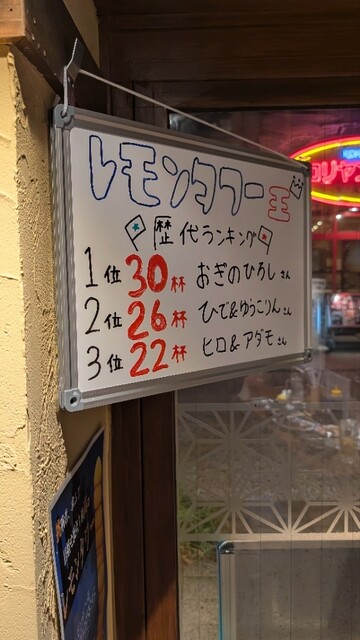 レモンサワー王
歴代ランキング
1位 30杯 おぎのひろしさん
2位 26杯 ひで&ゆうこりんさん
3位 22杯 ヒロ&アダモさん